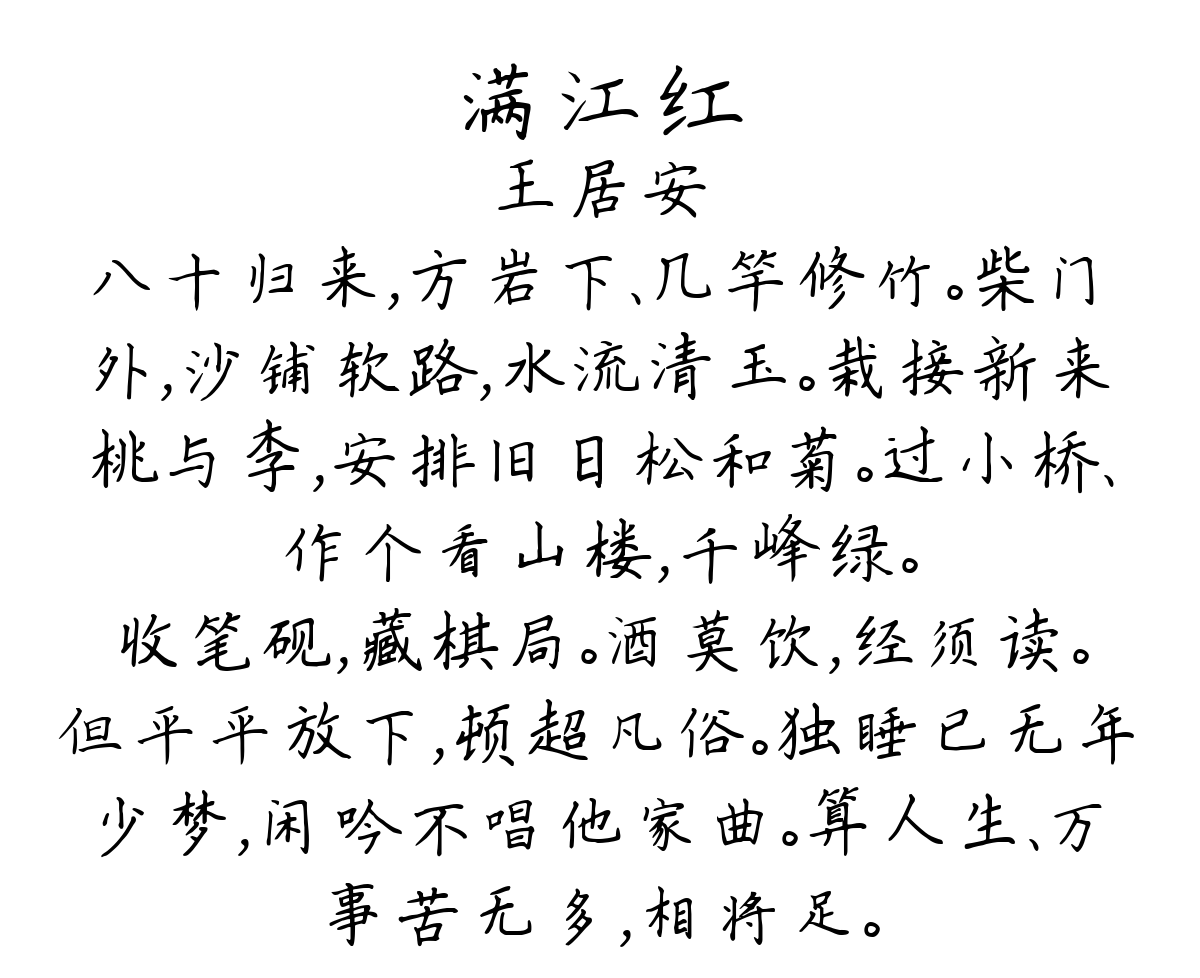 满江红
王居安
八十归来,方岩下、几竿修竹。柴门
外,沙铺软路,水流清玉。栽接新来
桃与李,安排旧日松和菊。过小桥、
作个看山楼,千峰绿。
收笔砚,藏棋局。酒莫饮,经须读。
但平平放下,顿超凡俗。独睡已无年
少梦,闲吟不唱他家曲。算人生、万
事苦无多,相将足。